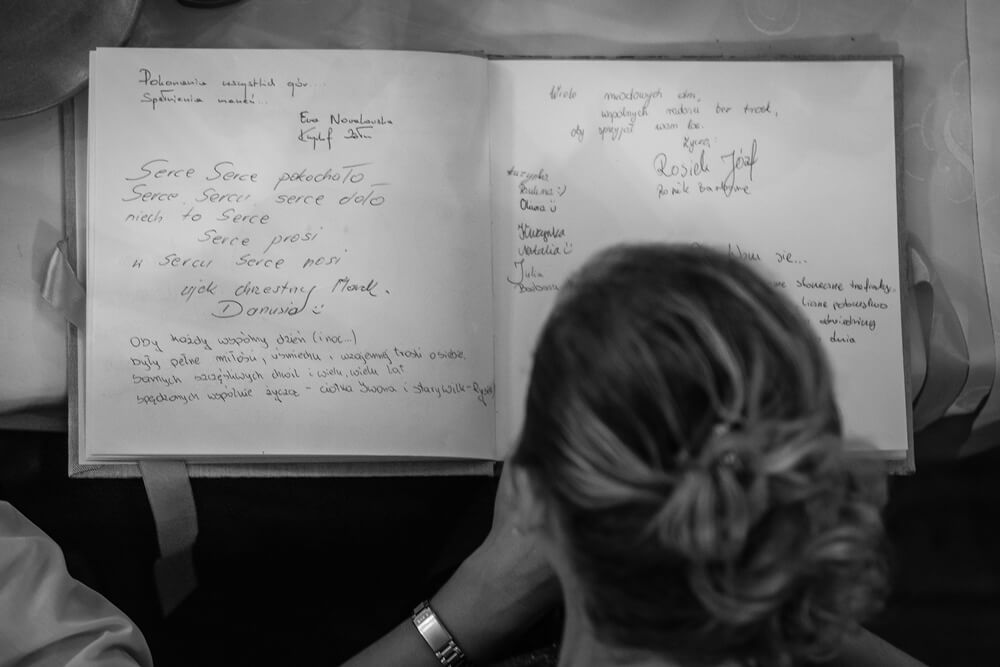 Pokonania wszystkich gór...
Spełnienia marzeń...
Ewa Nowakowska
Serce Serce pokochało
Serce Sercu serce dało
niech to Serce
Serce prosi
w Sercu Serce nosi
wujek chrzestny Marek.
Danusia
Oby każdy wspólny dzień (i noc...)
były pełne miłości, uśmiechu, wzajemnej troski o siebie,
samych szczęśliwych chwil i wielu, wielu lat
spędzonych wspólnie życzą - ciotka Iwona i stary wilk - Ryś
Wiele miodowych dni,
wspólnych radości bez trosk,
oby sprzyjał wam los.
Życzą:
Rosiek Józef
Kuzynka
Paulina :)
Oliwia
Kuzynka
Natalia
Julia
Wam się...
słoneczne
dnia